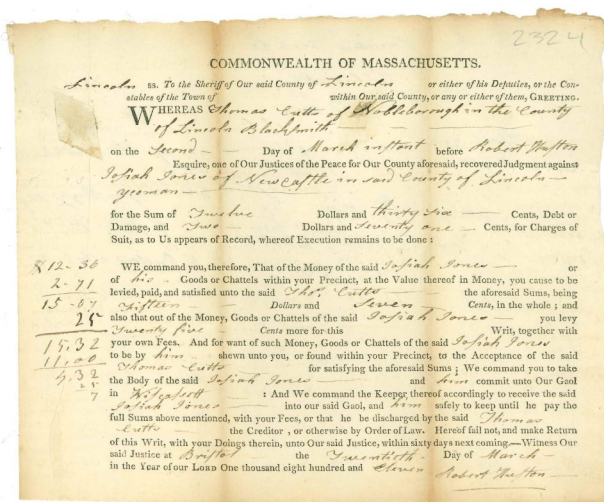 2324
COMMONWEALTH OF MASSACHUSETTS.
Lincoln ss. To the Sheriff of Our said County of Lincoln or either of his Deputies, or the Con-
stables of the Town of within Our said County, or any or either of them, GREETING.
WHEREAS Thomas Cutts of Nobleborough in the County
of Lincoln Blacksmith
on the Second Day of March instant before Robert Huston
Esquire, one of Our Justices of the Peace for Our County aforesaid, recovered Judgment against
Josiah Jones of Newcastle in said County of Lincoln
yeoman
for the Sum of Twelve Dollars and thirty Six Cents, Debt or
Damage, and Two Dollars and Seventy one Cents, for Charges of
Suit, as to Us appears of Record, whereof Execution remains to be done :
12-36
2-71
15-07
25
15,32
11,00
4,32
25
7
WE command you, therefore, That of the Money of the said Josiah Jones or
of his Goods or Chattels within your Precinct, at the Value thereof in Money, you cause to be
levied, paid, and satisfied unto the said Thos. Cutts the aforesaid Sums, being
Fifteen Dollars and Seven Cents, in the whole ; and
also that out of the Money, Goods or Chattels of the said Josiah Jones you levy
Twenty five Cents more for this Writ, together with
your own Fees. And for want of such Money, Goods or Chattels of the said Josiah Jones
to be by him shewn unto you, or found within your Precinct, to the Acceptance of the said
Thomas Cutts for satisfying the aforesaid Sums ; We command you to take
the Body of the said Josiah Jones and him commit unto Our Gaol
in Wiscassett : And We command the Keeper thereof accordingly to receive the said
Josiah Jones into our said Gaol, and him safely to keep until he pay the
full Sums above mentioned, with your Fees, or that he be discharged by the said Thomas
Cutts the Creditor , or otherwise by Order of Law. Hereof fail not, and make Return
of this Writ, with your Doings therein, unto Our said Justice, within sixty days next coming.—Witness Our
said Justice at Bristol the Twentieth Day of March
in the Year of our LORD One thousand eight hundred and Eleven
Robert Huston